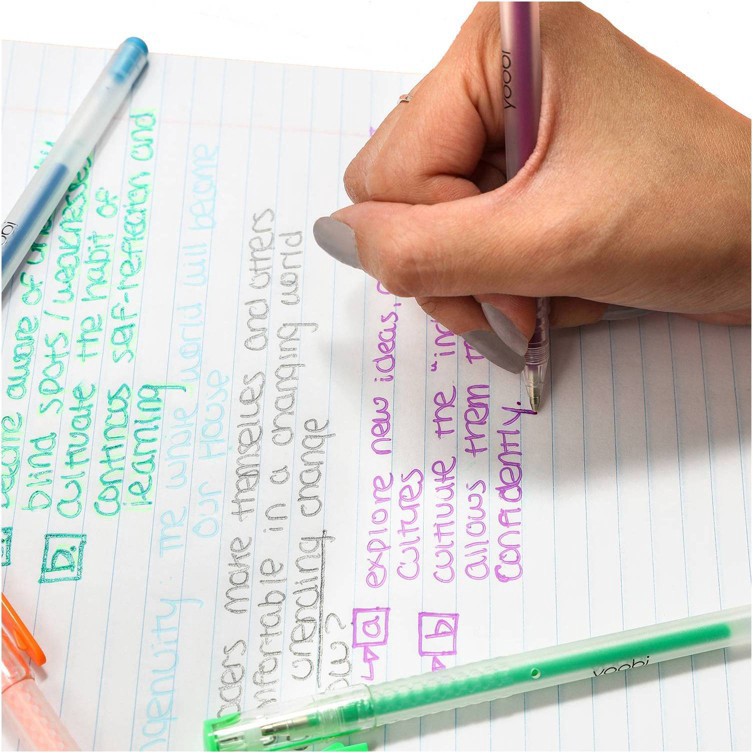 aware of
blind spots/weaknesses
b. cultivate the habit of
continous self-reflection and
learning
the whole world will become
our House
ingenuity
make themselves and others
in a changing world
unending change
a explore new ideas,
cultures
b cultivate the "in
allows them t
confidently.
yoobi
yoobi